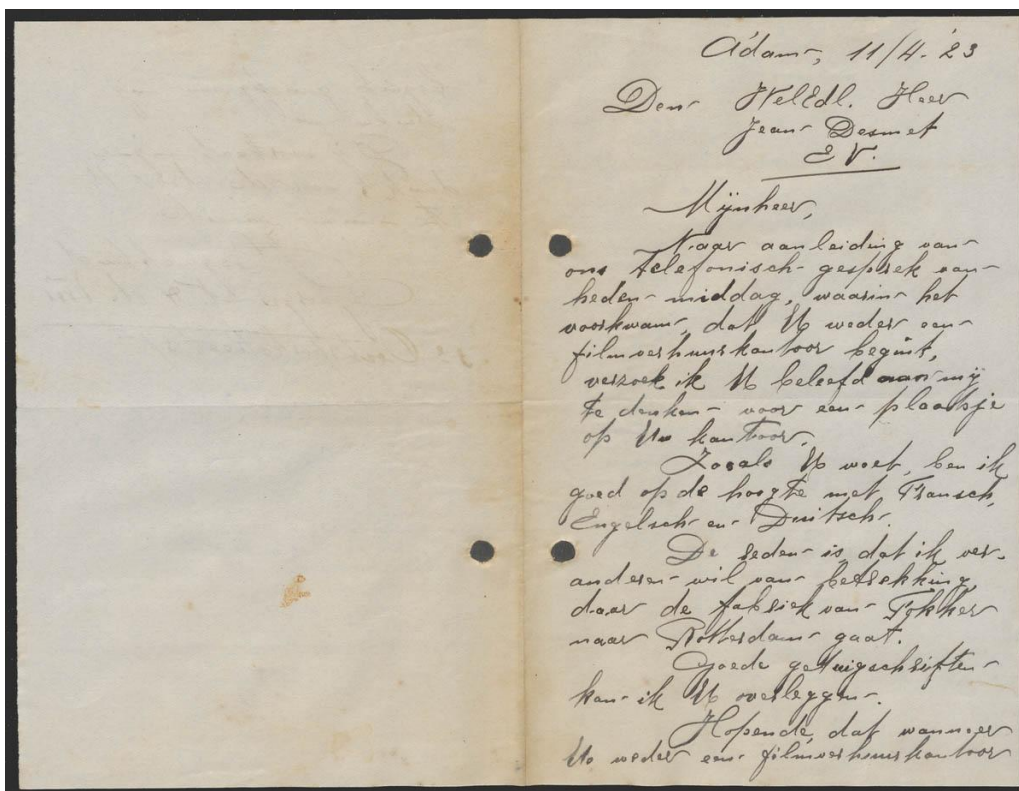 A'dam, 11/4.'23
Den WelEdl. Heer
Jean Desmet
E V.
Mijnheer,
Naar aanleiding van
ons telefonisch gesprek van
heden middag, waarin het
voorkwam, dat U weder een
filmverhuurkantoor begint,
verzoek ik U beleefd aan mij
te denken voor een plaatsje
op Uw kantoor.
Zooals U weet, ben ik
goed op de hoogte met Fransch,
Engelsch en Duitsch.
De reden is, dat ik ver-
anderen wil van betrekking,
daar de fabriek van Fokker
naar Rotterdam gaat.
Goede getuigschriften
kan ik U overleggen.
Hopende, dat wanneer
U weder een filmverhuurkantoor